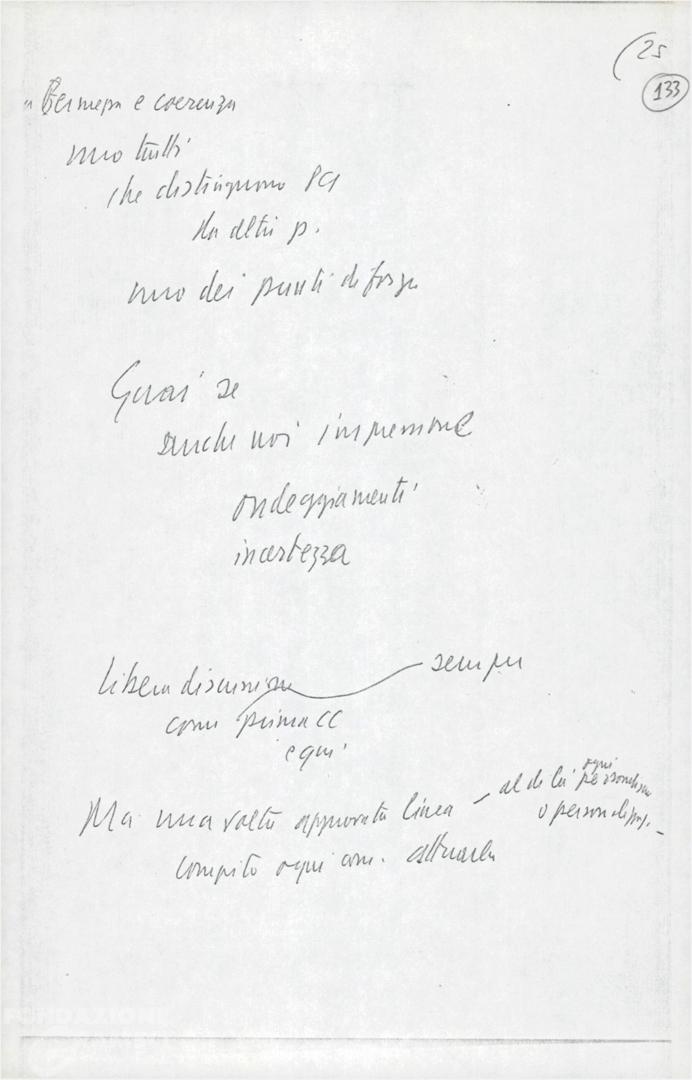 (25
133
Fermezza e coerenza
uno tratti
che distinguono PCI
da altri p.
uno dei punti di forza
Guai se
anche noi impressione
ondeggiamenti
incertezza
libera discussione sempre
come prima CC
e qui
Ma una volta approvata linea – al di là ogni personalismo
o personalizzaz. –
compito ogni com. attuarla
FONDAZIONE